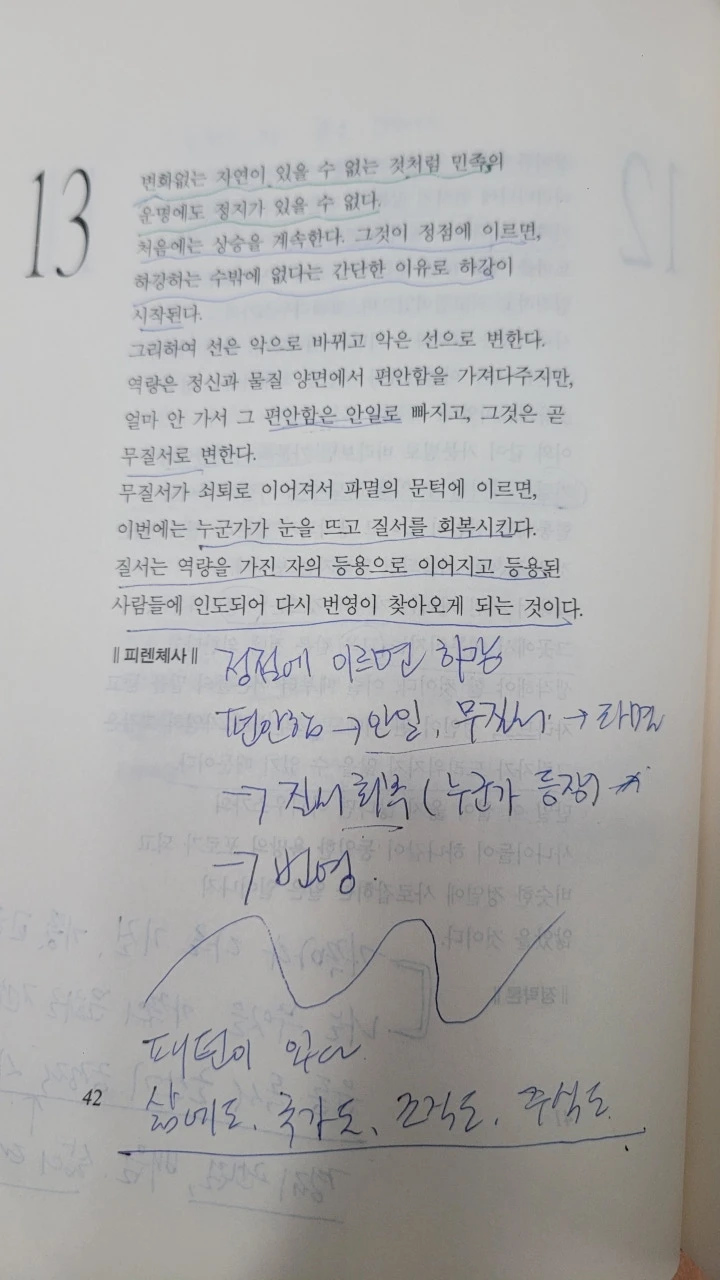 13
변화없는 자연이 있을 수 없는 것처럼 민족의
운명에도 정지가 있을 수 없다.
처음에는 상승을 계속한다. 그것이 정점에 이르면,
하강하는 수밖에 없다는 간단한 이유로 하강이
시작된다.
그리하여 선은 악으로 바뀌고 악은 선으로 변한다.
역량은 정신과 물질 양면에서 편안함을 가져다주지만,
얼마 안 가서 그 편안함은 안일로 빠지고, 그것은 곧
무질서로 변한다.
무질서가 쇠퇴로 이어져서 파멸의 문턱에 이르면,
이번에는 누군가가 눈을 뜨고 질서를 회복시킨다.
질서는 역량을 가진 자의 등용으로 이어지고 등용된
사람들에 인도되어 다시 번영이 찾아오게 되는 것이다.
‖피렌체사‖
정점에 이르면 하강
편안함 → 안일, 무질서 → 파멸
→ 질서 회복 (누군가 등장)
→ 번영.
패턴이 있다
삶에도, 국가도, 조직도, 주식도
42